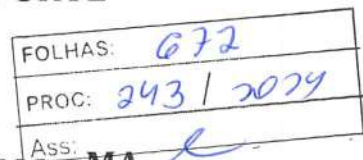 FOLHAS: 672
PROC: 243 / 2024
Ass:
MA